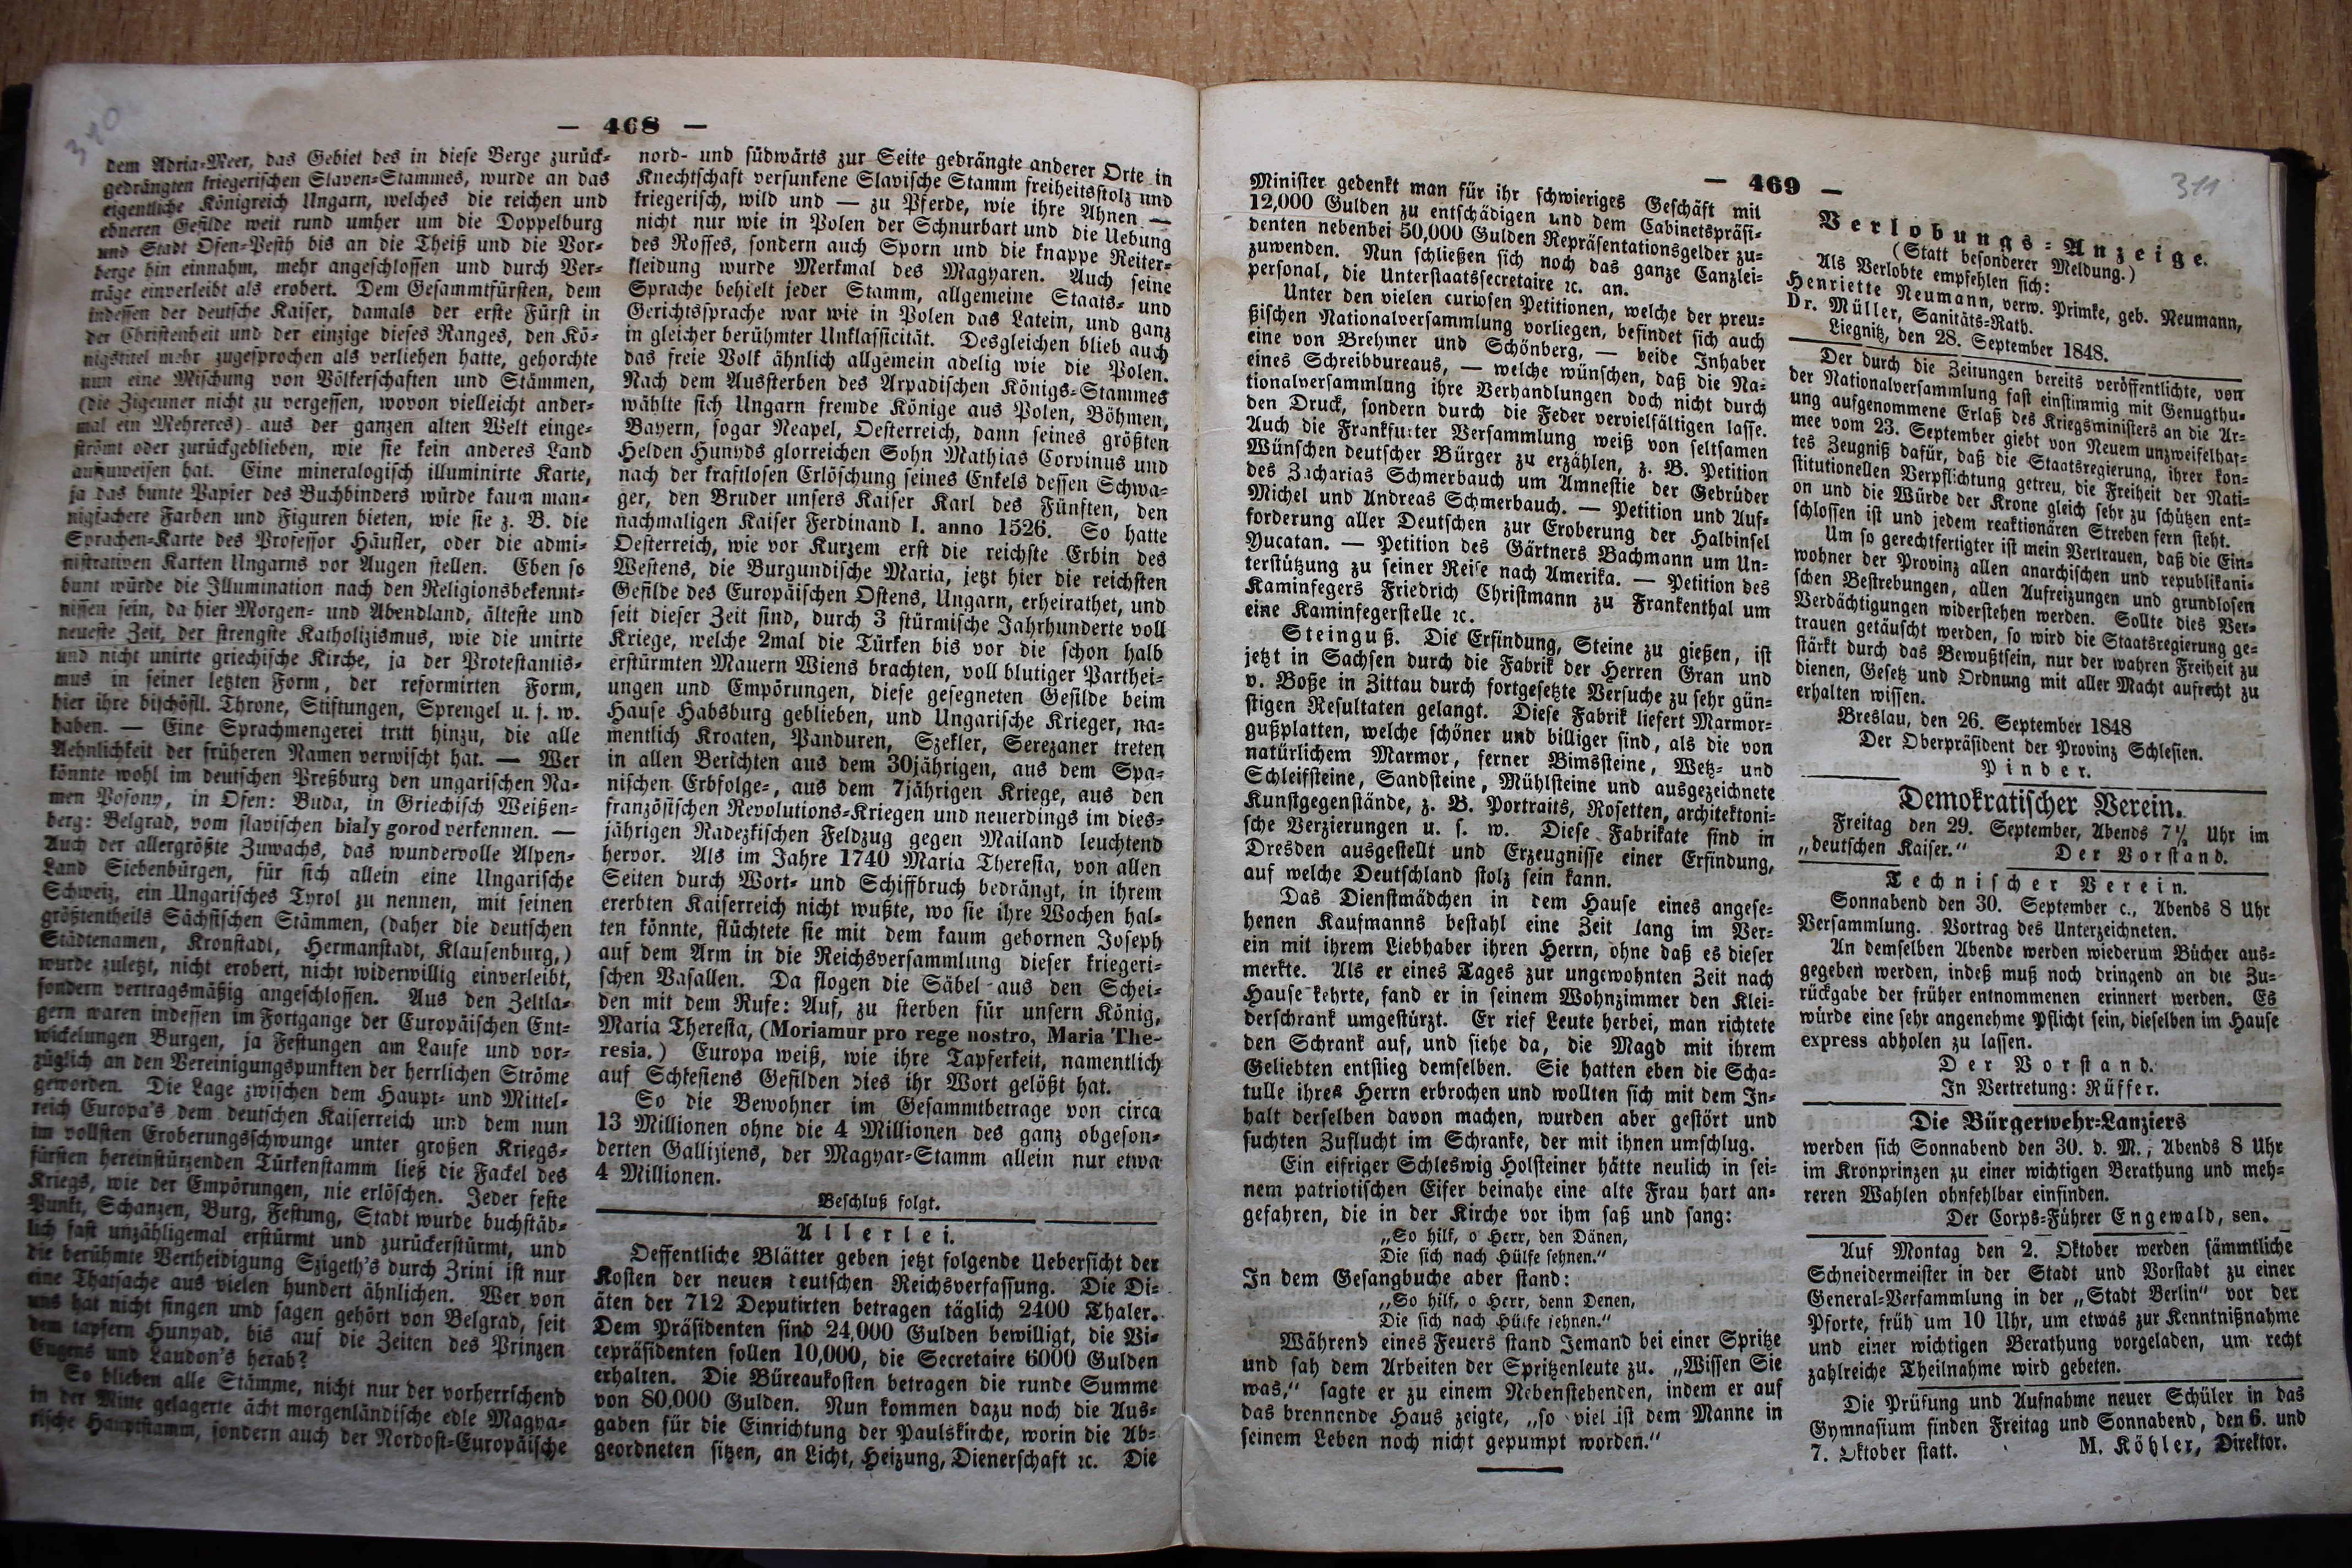 310
— 468 —
dem Adria-Meer, das Gebiet des in diese Berge zurück-
gedrängten kriegerischen Slaven-Stammes, wurde an das
eigentliche Königreich Ungarn, welches die reichen und
ebneren Gefilde weit rund umher um die Doppelburg
und Stadt Ofen-Pesth bis an die Theiß und die Vor-
berge hin einnahm, mehr angeschlossen und durch Ver-
träge einverleibt als erobert. Dem Gesammtfürsten, dem
indessen der deutsche Kaiser, damals der erste Fürst in
der Christenheit und der einzige dieses Ranges, den Kö-
nigstitel mehr zugesprochen als verliehen hatte, gehorchte
nun eine Mischung von Völkerschaften und Stämmen,
(die Zigeuner nicht zu vergessen, wovon vielleicht ander-
mal ein Mehreres) aus der ganzen alten Welt einge-
strömt oder zurückgeblieben, wie sie kein anderes Land
aufzuweisen hat. Eine mineralogisch illuminirte Karte,
ja das bunte Papier des Buchbinders würde kaum man-
nigfachere Farben und Figuren bieten, wie sie z. B. die
Sprachen-Karte des Professor Häufler, oder die admi-
nistrativen Karten Ungarns vor Augen stellen. Eben so
bunt würde die Illumination nach den Religionsbekennt-
nissen sein, da hier Morgen- und Abendland, älteste und
neueste Zeit, der strengste Katholizismus, wie die unirte
und nicht unirte griechische Kirche, ja der Protestantis-
mus in seiner letzten Form, der reformirten Form,
hier ihre bischöfl. Throne, Stiftungen, Sprengel u. s. w.
haben. — Eine Sprachmengerei tritt hinzu, die alle
Aehnlichkeit der früheren Namen verwischt hat. — Wer
könnte wohl im deutschen Preßburg den ungarischen Na-
men Posony, in Ofen: Buda, in Griechisch Weißen-
berg: Belgrad, vom slavischen biały gorod verkennen. —
Auch der allergrößte Zuwachs, das wundervolle Alpen-
Land Siebenbürgen, für sich allein eine Ungarische
Schweiz, ein Ungarisches Tyrol zu nennen, mit seinen
größtentheils Sächsischen Stämmen, (daher die deutschen
Städtenamen, Kronstadt, Hermanstadt, Klausenburg,)
wurde zuletzt, nicht erobert, nicht widerwillig einverleibt,
sondern vertragsmäßig angeschlossen. Aus den Zeltla-
gern waren indessen im Fortgange der Europäischen Ent-
wickelungen Burgen, ja Festungen am Laufe und vor-
züglich an den Vereinigungspunkten der herrlichen Ströme
geworden. Die Lage zwischen dem Haupt- und Mittel-
reich Europa's dem deutschen Kaiserreich und dem nun
im vollsten Eroberungsschwunge unter großen Kriegs-
fürsten hereinstürzenden Türkenstamm ließ die Fackel des
Kriegs, wie der Empörungen, nie erlöschen. Jeder feste
Punkt, Schanzen, Burg, Festung, Stadt wurde buchstäb-
lich fast unzähligemal erstürmt und zurückerstürmt, und
die berühmte Vertheidigung Szigeth's durch Zrini ist nur
eine Thatsache aus vielen hundert ähnlichen. Wer von
uns hat nicht singen und sagen gehört von Belgrad, seit
dem tapfern Hunyad, bis auf die Zeiten des Prinzen
Eugens und Laudon's herab?
So blieben alle Stämme, nicht nur der vorherrschend
in der Mitte gelagerte ächt morgenländische edle Magya-
rische Hauptstamm, sondern auch der Nordost-Europäische
nord- und südwärts zur Seite gedrängte anderer Orte in
Knechtschaft versunkene Slavische Stamm freiheitsstolz und
kriegerisch, wild und — zu Pferde, wie ihre Ahnen —
nicht nur wie in Polen der Schnurbart und die Uebung
des Rosses, sondern auch Sporn und die knappe Reiter-
kleidung wurde Merkmal des Magyaren. Auch seine
Sprache behielt jeder Stamm, allgemeine Staats- und
Gerichtssprache war wie in Polen das Latein, und ganz
in gleicher berühmter Unklassicität. Desgleichen blieb auch
das freie Volk ähnlich allgemein adelig wie die Polen.
Nach dem Aussterben des Arpadischen Königs-Stammes
wählte sich Ungarn fremde Könige aus Polen, Böhmen,
Bayern, sogar Neapel, Oesterreich, dann seines größten
Helden Hunyds glorreichen Sohn Mathias Corvinus und
nach der kraftlosen Erlöschung seines Enkels dessen Schwa-
ger, den Bruder unsers Kaiser Karl des Fünften, den
nachmaligen Kaiser Ferdinand I. anno 1526. So hatte
Oesterreich, wie vor Kurzem erst die reichste Erbin des
Westens, die Burgundische Maria, jetzt hier die reichsten
Gefilde des Europäischen Ostens, Ungarn, erheirathet, und
seit dieser Zeit sind, durch 3 stürmische Jahrhunderte voll
Kriege, welche 2mal die Türken bis vor die schon halb
erstürmten Mauern Wiens brachten, voll blutiger Parthei-
ungen und Empörungen, diese gesegneten Gefilde beim
Hause Habsburg geblieben, und Ungarische Krieger, na-
mentlich Kroaten, Panduren, Szekler, Serezaner treten
in allen Berichten aus dem 30jährigen, aus dem Spa-
nischen Erbfolge-, aus dem 7jährigen Kriege, aus den
französischen Revolutions-Kriegen und neuerdings im dies-
jährigen Radezkischen Feldzug gegen Mailand leuchtend
hervor. Als im Jahre 1740 Maria Theresia, von allen
Seiten durch Wort- und Schiffbruch bedrängt, in ihrem
ererbten Kaiserreich nicht wußte, wo sie ihre Wochen hal-
ten könnte, flüchtete sie mit dem kaum gebornen Joseph
auf dem Arm in die Reichsversammlung dieser kriegeri-
schen Vasallen. Da flogen die Säbel aus den Schei-
den mit dem Rufe: Auf, zu sterben für unsern König,
Maria Theresia, (Moriamur pro rege nostro, Maria The-
resia.) Europa weiß, wie ihre Tapferkeit, namentlich
auf Schlesiens Gefilden dies ihr Wort gelößt hat.
So die Bewohner im Gesammtbetrage von circa
13 Millionen ohne die 4 Millionen des ganz obgeson-
derten Galliziens, der Magyar-Stamm allein nur etwa
4 Millionen.
Beschluß folgt.
Allerlei.
Oeffentliche Blätter geben jetzt folgende Uebersicht der
Kosten der neuen deutschen Reichsverfassung. Die Di-
äten der 712 Deputirten betragen täglich 2400 Thaler.
Dem Präsidenten sind 24,000 Gulden bewilligt, die Vi-
cepräsidenten sollen 10,000, die Secretaire 6000 Gulden
erhalten. Die Büreaukosten betragen die runde Summe
von 80,000 Gulden. Nun kommen dazu noch die Aus-
gaben für die Einrichtung der Paulskirche, worin die Ab-
geordneten sitzen, an Licht, Heizung, Dienerschaft ꝛc. Die
— 469 —
311
Minister gedenkt man für ihr schwieriges Geschäft mit
12,000 Gulden zu entschädigen und dem Cabinetspräsi-
denten nebenbei 50,000 Gulden Repräsentationsgelder zu-
zuwenden. Nun schließen sich noch das ganze Canzlei-
personal, die Unterstaatssecretaire ꝛc. an.
Unter den vielen curiosen Petitionen, welche der preu-
ßischen Nationalversammlung vorliegen, befindet sich auch
eine von Brehmer und Schönberg, — beide Inhaber
eines Schreibbureaus, — welche wünschen, daß die Na-
tionalversammlung ihre Verhandlungen doch nicht durch
den Druck, sondern durch die Feder vervielfältigen lasse.
Auch die Frankfurter Versammlung weiß von seltsamen
Wünschen deutscher Bürger zu erzählen, z. B. Petition
des Zacharias Schmerbauch um Amnestie der Gebrüder
Michel und Andreas Schmerbauch. — Petition und Auf-
forderung aller Deutschen zur Eroberung der Halbinsel
Yucatan. — Petition des Gärtners Bachmann um Un-
terstützung zu seiner Reise nach Amerika. — Petition des
Kaminfegers Friedrich Christmann zu Frankenthal um
eine Kaminfegerstelle ꝛc.
Steinguß. Die Erfindung, Steine zu gießen, ist
jetzt in Sachsen durch die Fabrik der Herren Gran und
v. Boße in Zittau durch fortgesetzte Versuche zu sehr gün-
stigen Resultaten gelangt. Diese Fabrik liefert Marmor-
gußplatten, welche schöner und billiger sind, als die von
natürlichem Marmor, ferner Bimssteine, Wetz- und
Schleifsteine, Sandsteine, Mühlsteine und ausgezeichnete
Kunstgegenstände, z. B. Portraits, Rosetten, architektoni-
sche Verzierungen u. s. w. Diese Fabrikate sind in
Dresden ausgestellt und Erzeugnisse einer Erfindung,
auf welche Deutschland stolz sein kann.
Das Dienstmädchen in dem Hause eines angese-
henen Kaufmanns bestahl eine Zeit lang im Ver-
ein mit ihrem Liebhaber ihren Herrn, ohne daß es dieser
merkte. Als er eines Tages zur ungewohnten Zeit nach
Hause kehrte, fand er in seinem Wohnzimmer den Klei-
derschrank umgestürzt. Er rief Leute herbei, man richtete
den Schrank auf, und siehe da, die Magd mit ihrem
Geliebten entstieg demselben. Sie hatten eben die Scha-
tulle ihres Herrn erbrochen und wollten sich mit dem In-
halt derselben davon machen, wurden aber gestört und
suchten Zuflucht im Schranke, der mit ihnen umschlug.
Ein eifriger Schleswig Holsteiner hätte neulich in sei-
nem patriotischen Eifer beinahe eine alte Frau hart an-
gefahren, die in der Kirche vor ihm saß und sang:
„So hilf, o Herr, den Dänen,
Die sich nach Hülfe sehnen.“
In dem Gesangbuche aber stand:
„So hilf, o Herr, denn Denen,
Die sich nach Hülfe sehnen.“
Während eines Feuers stand Jemand bei einer Spritze
und sah dem Arbeiten der Spritzenleute zu. „Wissen Sie
was,“ sagte er zu einem Nebenstehenden, indem er auf
das brennende Haus zeigte, „so viel ist dem Manne in
seinem Leben noch nicht gepumpt worden.“
Verlobungs-Anzeige.
(Statt besonderer Meldung.)
Als Verlobte empfehlen sich:
Henriette Neumann, verw. Primke, geb. Neumann,
Dr. Müller, Sanitäts-Rath.
Liegnitz, den 28. September 1848.
Der durch die Zeitungen bereits veröffentlichte, von
der Nationalversammlung fast einstimmig mit Genugthu-
ung aufgenommene Erlaß des Kriegsministers an die Ar-
mee vom 23. September giebt von Neuem unzweifelhaf-
tes Zeugniß dafür, daß die Staatsregierung, ihrer kon-
stitutionellen Verpflichtung getreu, die Freiheit der Nati-
on und die Würde der Krone gleich sehr zu schützen ent-
schlossen ist und jedem reaktionären Streben fern steht.
Um so gerechtfertigter ist mein Vertrauen, daß die Ein-
wohner der Provinz allen anarchischen und republikani-
schen Bestrebungen, allen Aufreizungen und grundlosen
Verdächtigungen widerstehen werden. Sollte dies Ver-
trauen getäuscht werden, so wird die Staatsregierung ge-
stärkt durch das Bewußtsein, nur der wahren Freiheit zu
dienen, Gesetz und Ordnung mit aller Macht aufrecht zu
erhalten wissen.
Breslau, den 26. September 1848
Der Oberpräsident der Provinz Schlesien.
Pinder.
Demokratischer Verein.
Freitag den 29. September, Abends 7½ Uhr im
„deutschen Kaiser.“ Der Vorstand.
Technischer Verein.
Sonnabend den 30. September c., Abends 8 Uhr
Versammlung. Vortrag des Unterzeichneten.
An demselben Abende werden wiederum Bücher aus-
gegeben werden, indeß muß noch dringend an die Zu-
rückgabe der früher entnommenen erinnert werden. Es
würde eine sehr angenehme Pflicht sein, dieselben im Hause
express abholen zu lassen.
Der Vorstand.
In Vertretung: Rüffer.
Die Bürgerwehr-Lanziers
werden sich Sonnabend den 30. d. M., Abends 8 Uhr
im Kronprinzen zu einer wichtigen Berathung und meh-
reren Wahlen ohnfehlbar einfinden.
Der Corps-Führer Engewald, sen.
Auf Montag den 2. Oktober werden sämmtliche
Schneidermeister in der Stadt und Vorstadt zu einer
General-Versammlung in der „Stadt Berlin“ vor der
Pforte, früh um 10 Uhr, um etwas zur Kenntnißnahme
und einer wichtigen Berathung vorgeladen, um recht
zahlreiche Theilnahme wird gebeten.
Die Prüfung und Aufnahme neuer Schüler in das
Gymnasium finden Freitag und Sonnabend, den 6. und
7. Oktober statt. M. Köhler, Direktor.